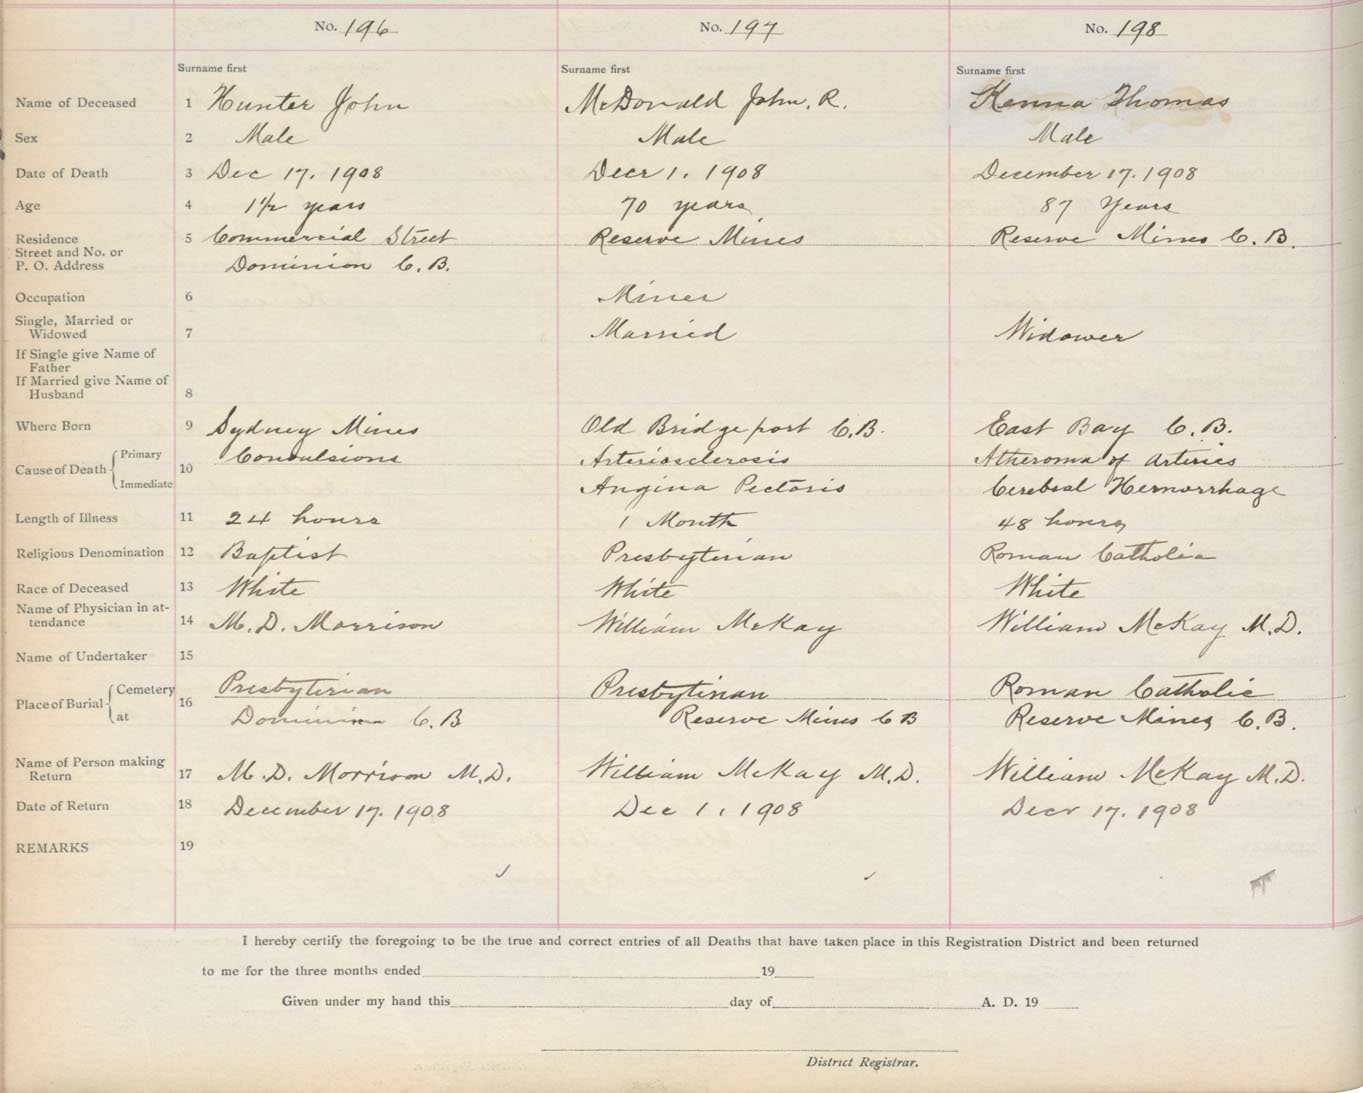 No. 196 No. 197 No. 198
Surname first Surname first Surname first
Name of Deceased 1 Hunter John McDonald John. R. Kenna Thomas
Sex 2 Male Male Male
Date of Death 3 Dec 17. 1908 Decr 1. 1908 December 17. 1908
Age 4 1½ years 70 years 87 Years
Residence 5 Commercial Street Reserve Mines Reserve Mines C. B.
Street and No. or
P. O. Address Dominion C. B.
Occupation 6 Miner
Single, Married or
Widowed 7 Married Widower
If Single give Name of
Father
If Married give Name of
Husband 8
Where Born 9 Sydney Mines Old Bridgeport C.B. East Bay C. B.
Cause of Death Primary 10 Convulsions Arteriosclerosis Atheroma of Arteries
Immediate Angina Pectoris Cerebral Hemorrhage
Length of Illness 11 24 hours 1 Month 48 hours
Religious Denomination 12 Baptist Presbyterian Roman Catholic
Race of Deceased 13 White White White
Name of Physician in at-
tendance 14 M. D. Morrison William McKay William McKay M.D.
Name of Undertaker 15
Place of Burial Cemetery 16 Presbyterian Presbyterian Roman Catholic
at Dominion C. B Reserve Mines C B Reserve Mines C. B.
Name of Person making
Return 17 M. D. Morrison M.D. William McKay M.D. William McKay M.D.
Date of Return 18 December 17. 1908 Dec 1, 1908 Decr 17. 1908
REMARKS 19
I hereby certify the foregoing to be the true and correct entries of all Deaths that have taken place in this Registration District and been returned
to me for the three months ended 19
Given under my hand this day of A. D. 19
District Registrar.